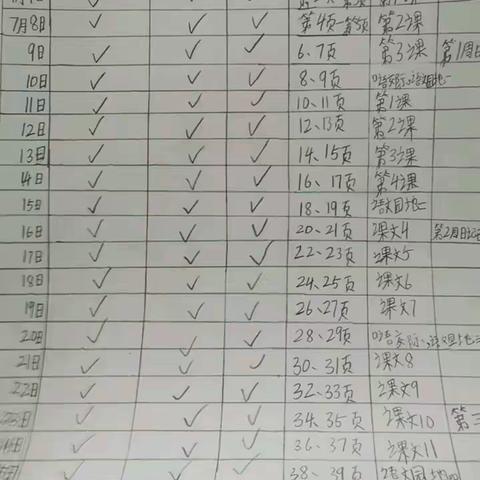 7月8日 ✓ ✓ ✓ 第4页-第5页 第2课
9日 ✓ ✓ ✓ 6、7页 第3课 第1周日
10日 ✓ ✓ ✓ 8、9页
11日 ✓ ✓ ✓ 10、11页 第1课
12日 ✓ ✓ ✓ 12、13页 第2课
13日 ✓ ✓ ✓ 14、15页 第3课
14日 ✓ ✓ ✓ 16、17页 第4课
15日 ✓ ✓ ✓ 18、19页 语文园地二
16日 ✓ ✓ ✓ 20、21页 课文4 第2周日记
17日 ✓ ✓ ✓ 22、23页 课文5
18日 ✓ ✓ ✓ 24、25页 课文6
19日 ✓ ✓ ✓ 26、27页 课文7
20日 ✓ ✓ ✓ 28、29页
21日 ✓ ✓ ✓ 30、31页 课文8
22日 ✓ ✓ ✓ 32、33页 课文9
23日 ✓ ✓ ✓ 34、35页 课文10 第三
✓ ✓ ✓ 36、37页 课文11
✓ ✓ ✓ 38、39页 语文园地四